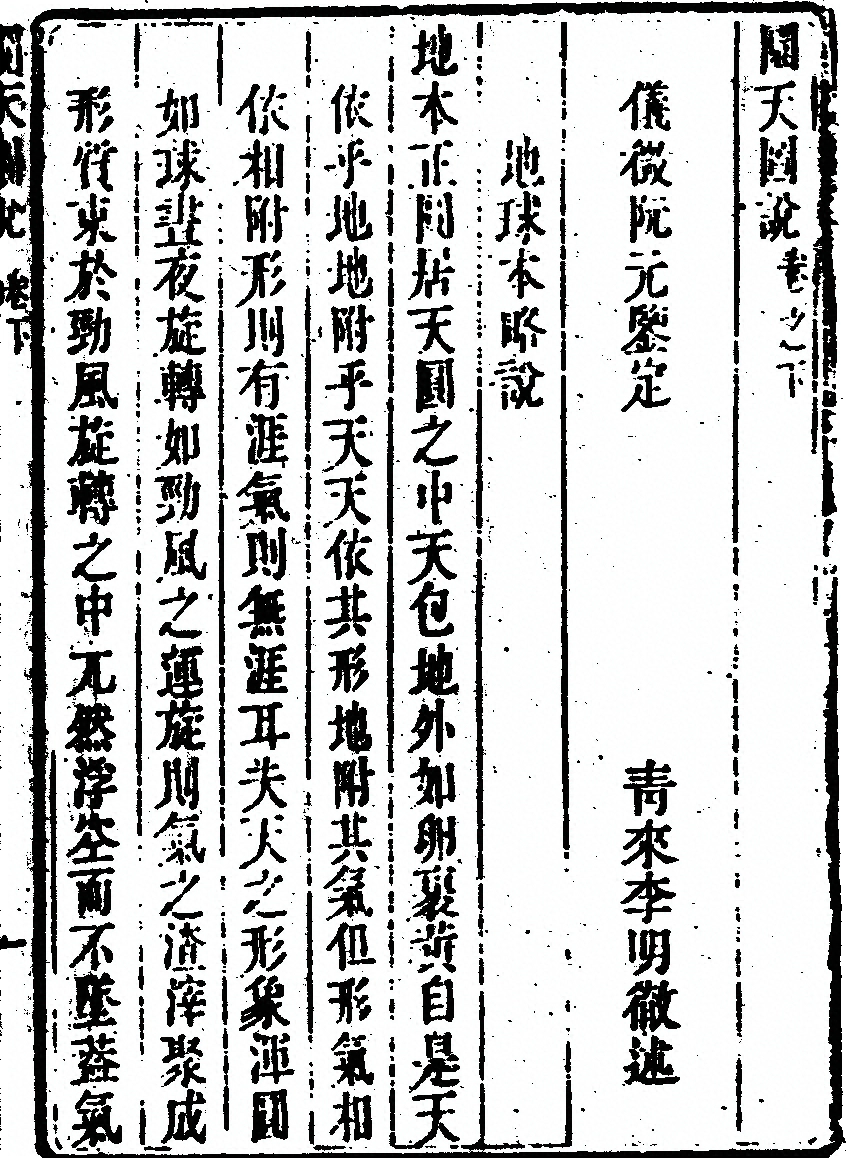 圜天圖說卷之下
儀徵阮元鑒定
青來李明徹述
地球本略說
地本正圓居天圜之中天包地外如卵裹黃自是天
依乎地地附乎天天依其形地附其氣但形氣相
依相附形則有涯氣則無涯耳夫天之形象渾圓
如球晝夜旋轉如勁風之運旋則氣之渣滓聚成
形質束於勁風旋轉之中兀然浮空而不墜葢氣
圜天圖說 卷下